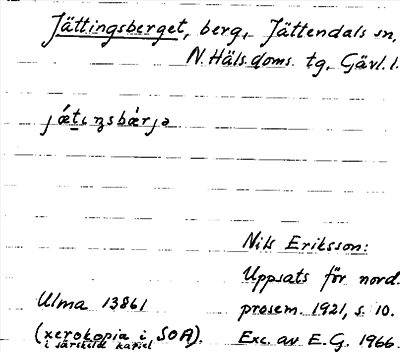 Jättingsberget, berg, Jättendals sn,
N. Häls. doms. tg, Gävl. l.
jǽtiŋsbærjə
Nils Eriksson:
Uppsats för nord.
Ulma 13861 prosem. 1921, s. 10.
(xerokopia i SOA). Exc. av E. G. 1966.
i särskild kapsel